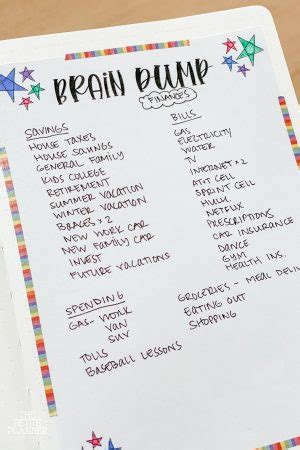 BRAIN DUMP
FINANCES
SAVINGS
HOUSE TAXES
HOUSE SAVINGS
GENERAL FAMILY
KIDS COLLEGE
RETIREMENT
SUMMER VACATION
WINTER VACATION
BRACES × 2
NEW WORK CAR
NEW FAMILY CAR
INVEST
FUTURE VACATIONS
BILLS
GAS
ELECTRICITY
WATER
TV
INTERNET × 2
AT&T CELL
SPRINT CELL
HULU
NETFLIX
PRESCRIPTIONS
CAR INSURANCE
DANCE
GYM
HEALTH INS.
SPENDING
GAS - WORK
VAN
SUV
TOLLS
BASEBALL LESSONS
GROCERIES - MEAL DELIV
EATING OUT
SHOPPING
THE
PLANNER